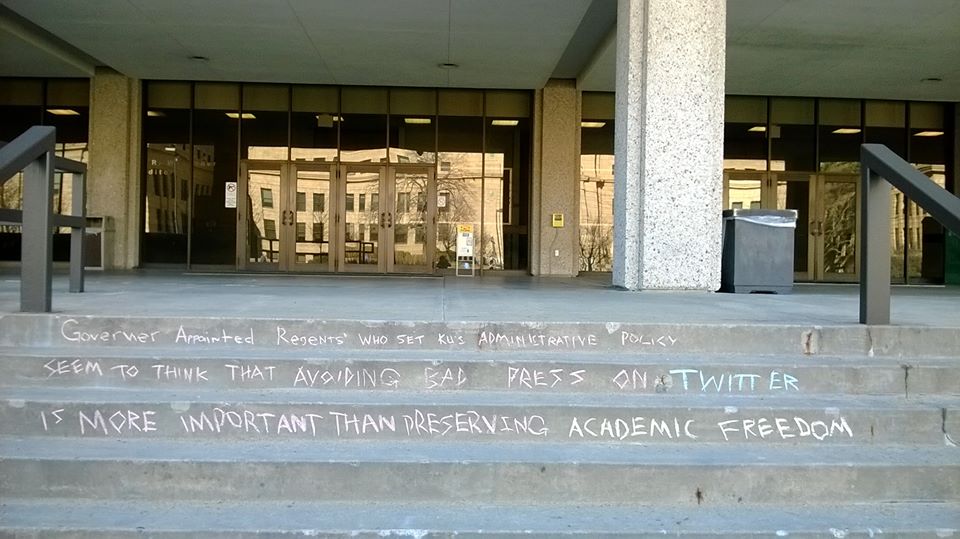 Governer Appointed Regents' WHO SET KU'S ADMINISTRATIVE POLICY
SEEM TO THINK THAT AVOIDING BAD PRESS ON TWITTER
IS MORE IMPORTANT THAN PRESERVING ACADEMIC FREEDOM